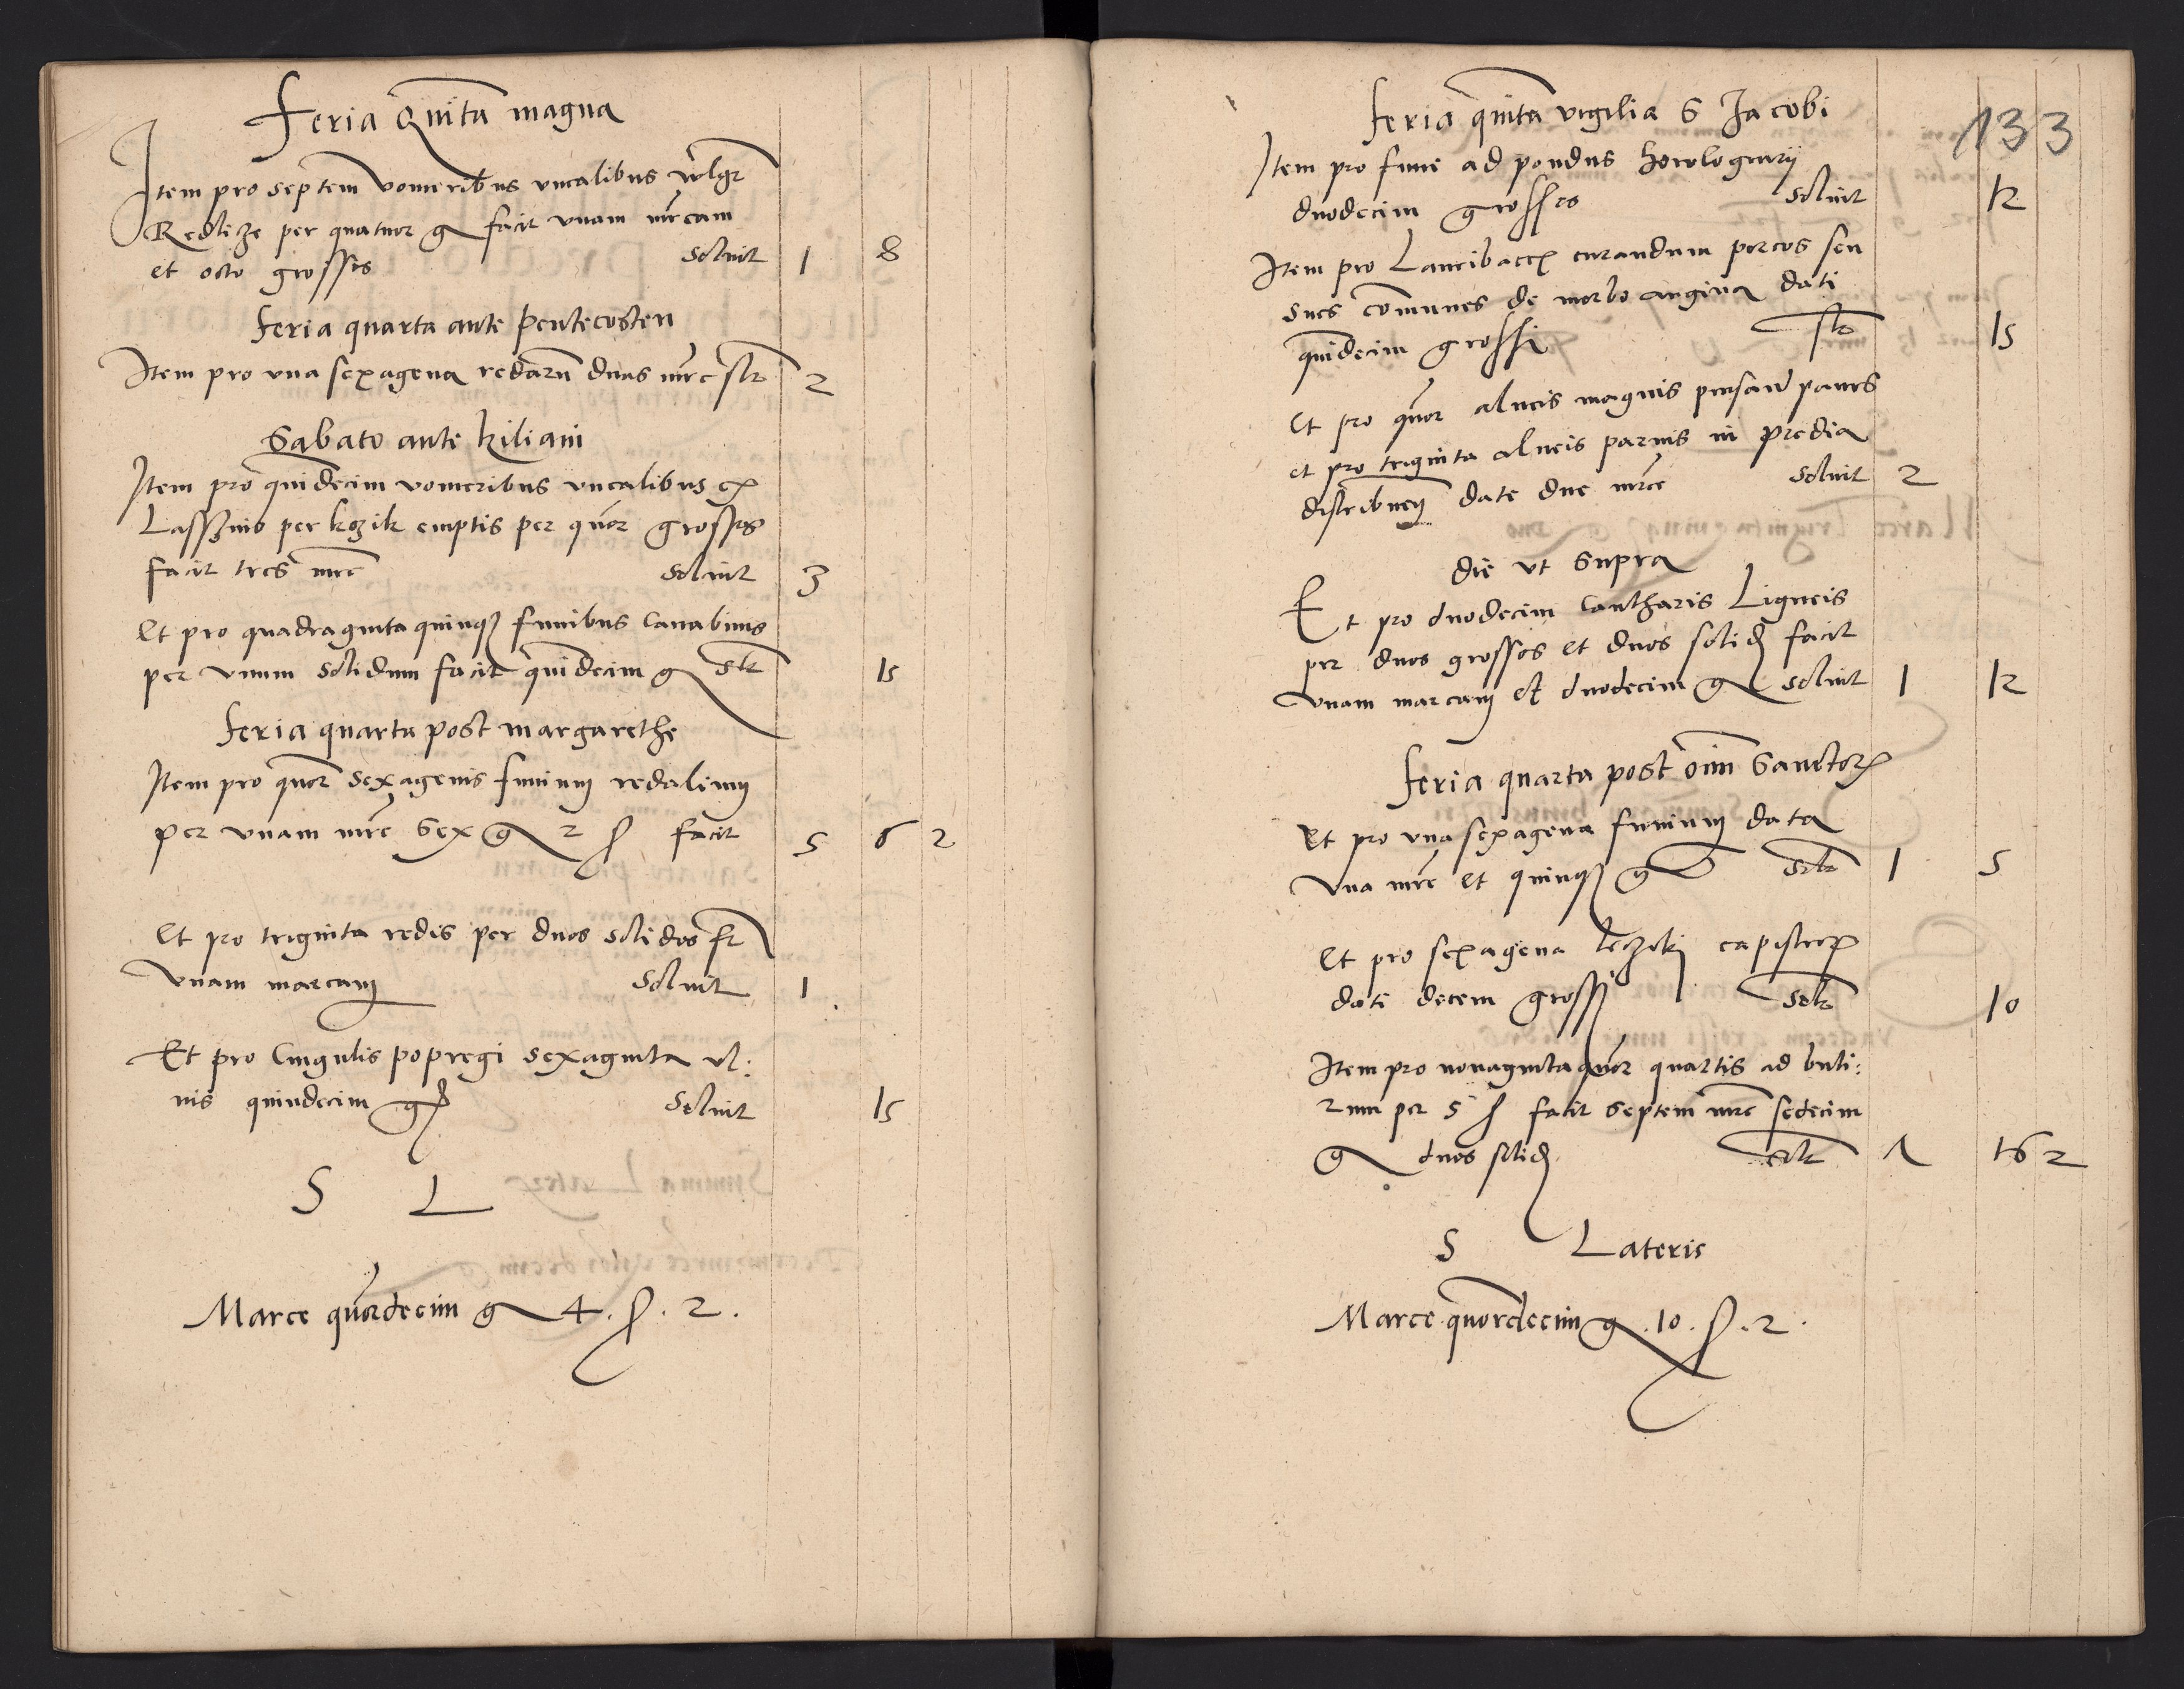 Feria Quinta magna
Item pro septem vomeribus vncalibus wlgr
Redlicze per quatuor g facit vnam mrcam
et octo grossos Soluit 1 8
feria quarta ante pentecosten
Item pro vna sexagena redarū duas mrc slt 2
Sabato ante kiliani
Item pro quindecim vomeribus vncalibus ex
Lassznio per kozik emptis per quor grossos
facit tres mrc Soluit 3
Et pro quadraginta quinqȝ funibus Canabinis
per vnum Solidum facit quindecim g Slt 15
feria quarta post margarethe
Item pro quor Sexagenis funium redalium
per vnam mrc Sex g 2 ſ facit 5 6 2
Et pro triginta redis per duos solidos ft
vnam marcam Soluit 1
Et pro Cingulis popregi sexaginta vl:
nis quindecim g Soluit 15
S L
Marce quordecim g 4. ſ. 2.
133
feria quinta vigilia S Jacobi
Item pro fune ad pondus horologiarij
duodecim grossos Soluit 12
Item pro curandum porcos seu
sues comunes de morbo angina dati
quindecim grossi slt 15
Et pro quor alueis magnis
et pro triginta alueis paruis in predia
date due mrce Soluit 2
die vt Supra
Et pro duodecim Cantharis Ligneis
per duos grossos et duos solid facit
vnam marcam et duodecim g soluit 1 12
feria quarta post oīm Sanctorum
Et pro vna sexagena funium data
vna mrc et quinqȝ g Solt 1 5
Et pro sexagena capistrorum
dati decem grossi Solt 10
Item pro nonaginta quor quartis ad buti:
rum per 5 ſ facit Septem mrc sedecim
g duos solid solt 7 16 2
S Lateris
Marce quordecim g .10. ſ. 2.